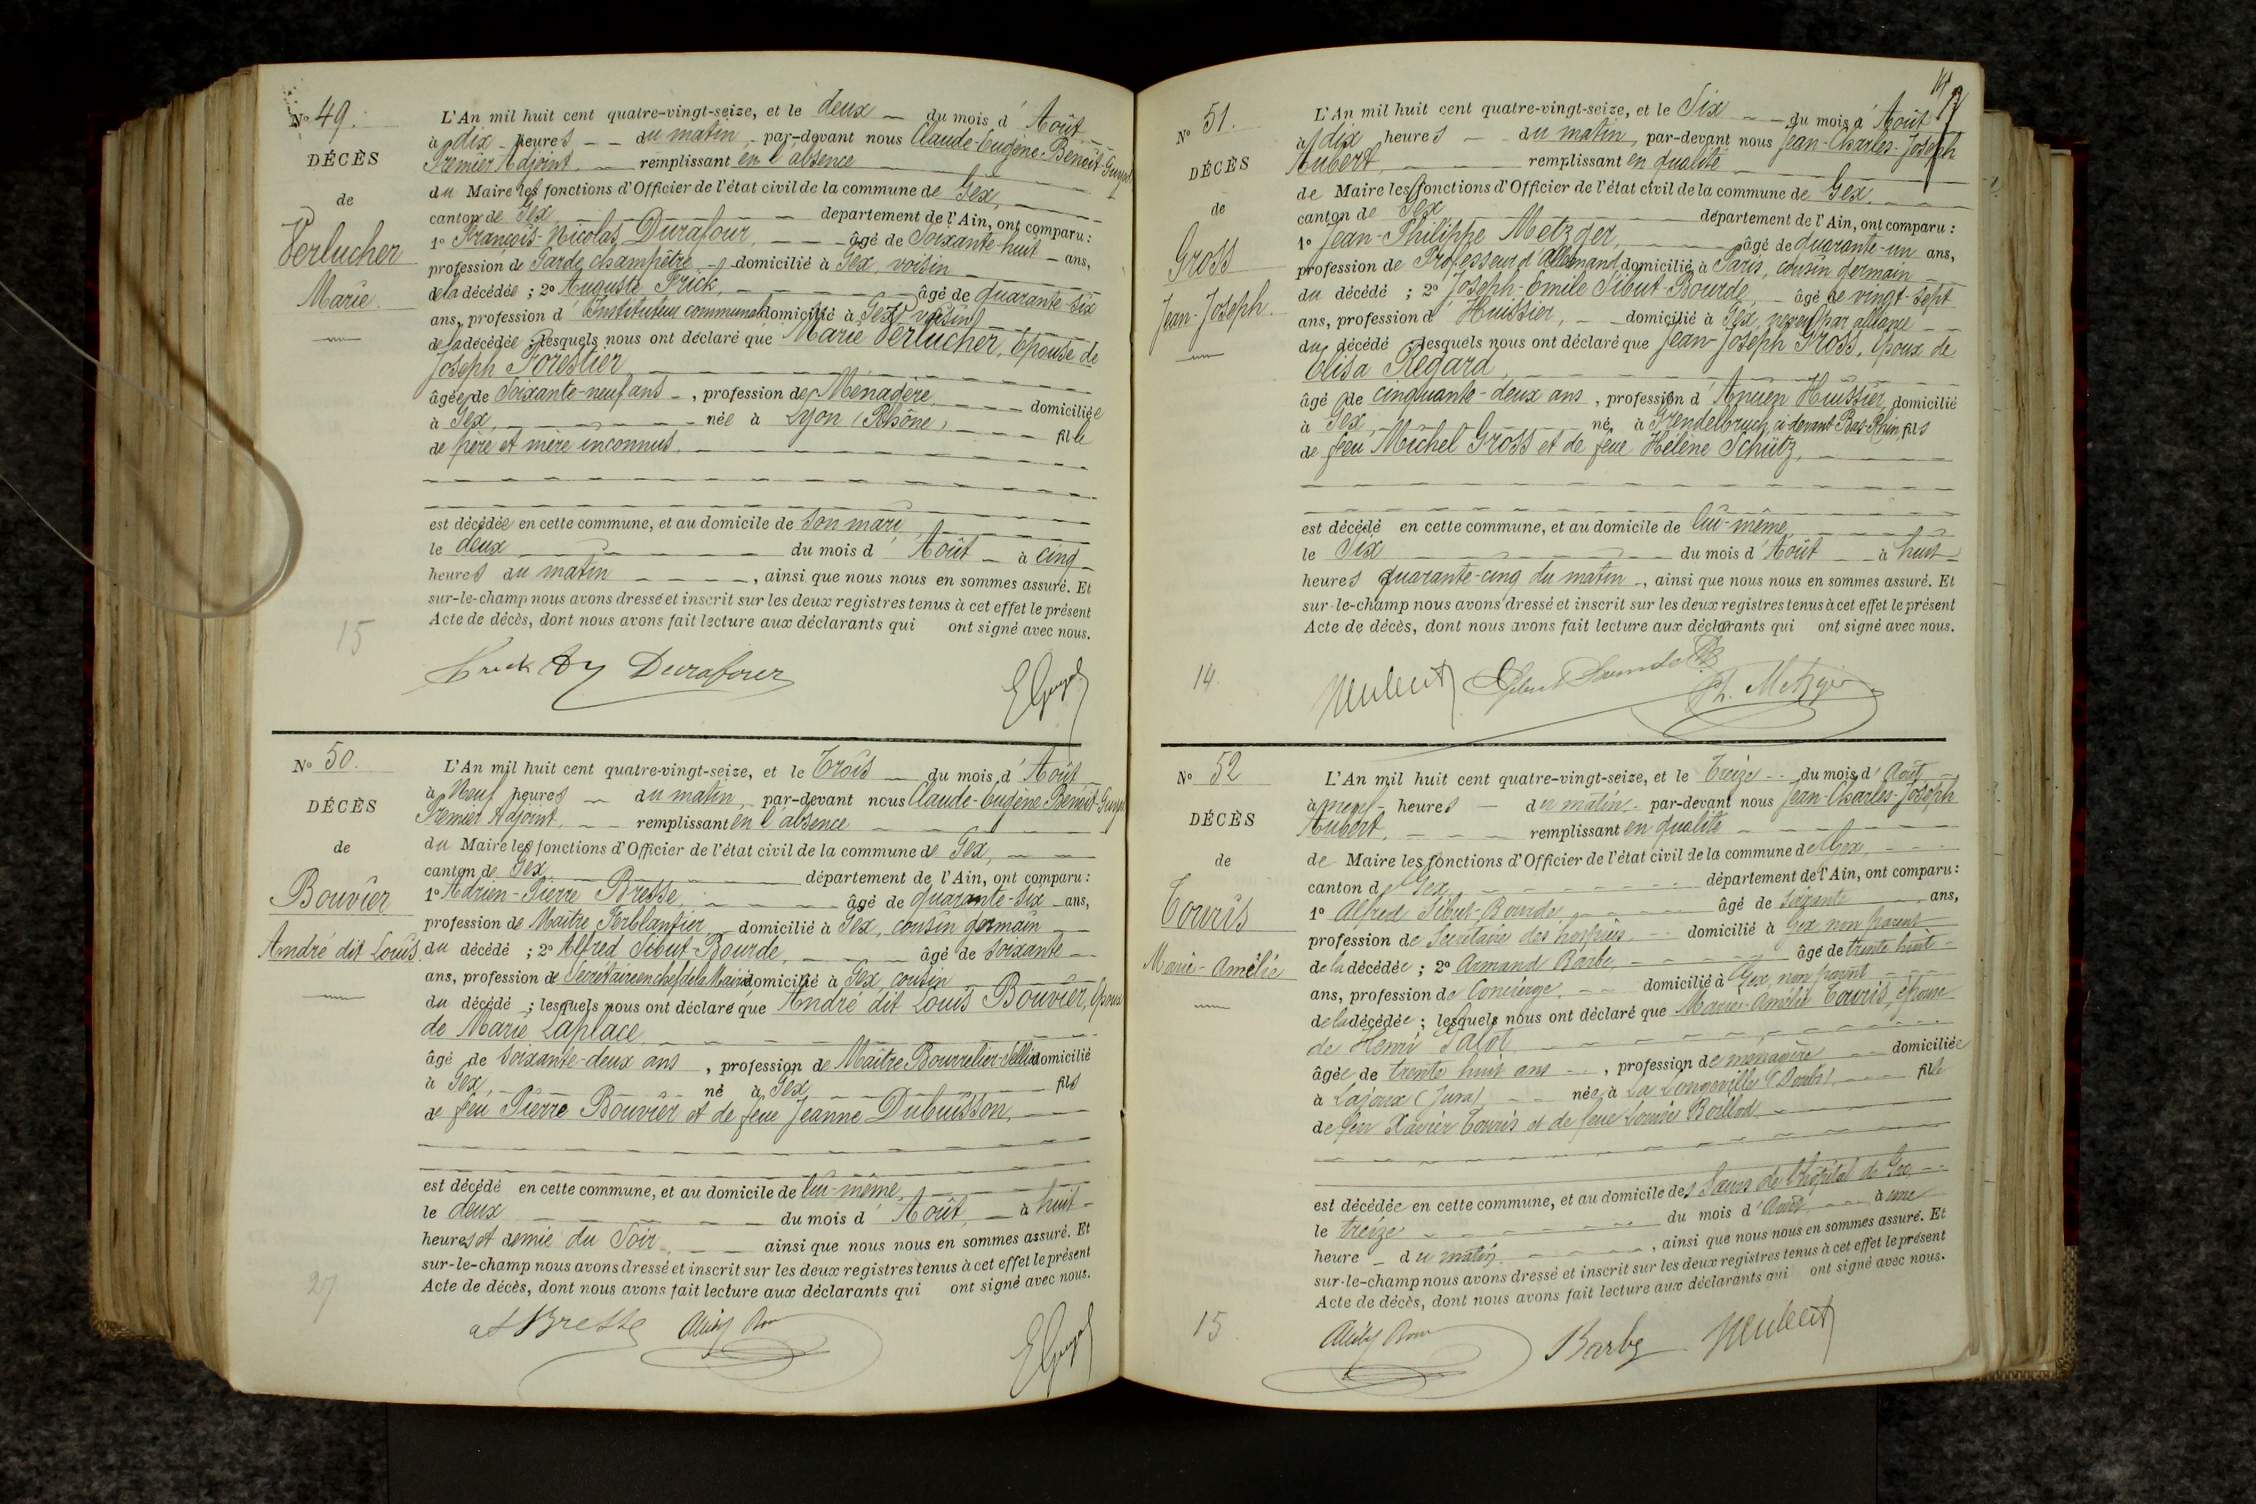 Nº 49.
DÉCÈS
de
Verlucher
Marie.
L'An mil huit cent quatre-vingt-seize, et le deux du mois d' Août
à dix heures du matin, par-devant nous Claude-Eugène-Benoît-Guyot
Premier Adjoint, remplissant en l'absence
du Maire les fonctions d'Officier de l'état civil de la commune de Gex,
canton de Gex département de l'Ain, ont comparu:
1º François-Nicolas Durafour, âgé de Soixante-huit ans,
profession de Garde champêtre domicilié à Gex, voisin
de la décédée ; 2º Auguste Frick, âgé de quarante-six
ans, profession d'Instituteur communal domicilié à Gex, voisin
de la décédée ; lesquels nous ont déclaré que Marie Verlucher, Epouse de
Joseph Forestier
âgée de Soixante-neuf ans, profession de Ménagère domiciliée
à Gex, née à Lyon (Rhône) fille
de père et mère inconnus.
est décédée en cette commune, et au domicile de son mari
le deux du mois d' Août à cinq
heures du matin, ainsi que nous nous en sommes assuré. Et
sur-le-champ nous avons dressé et inscrit sur les deux registres tenus à cet effet le présent
Acte de décès, dont nous avons fait lecture aux déclarants qui ont signé avec nous.
15
Frick Durafour EGuyot
Nº 50.
DÉCÈS
de
Bouvier
André dit Louis.
L'An mil huit cent quatre-vingt-seize, et le Trois du mois d' Août
à Neuf heures du matin, par-devant nous Claude-Eugène-Benoît-Guyot
Premier Adjoint, remplissant en l'absence
du Maire les fonctions d'Officier de l'état civil de la commune de Gex,
canton de Gex département de l'Ain, ont comparu:
1º Adrien-Pierre Bresse, âgé de quarante-six ans,
profession de Maître Ferblantier domicilié à Gex, cousin germain
du décédé ; 2º Alfred Sibut-Bourde, âgé de soixante
ans, profession de Secrétaire en chef de la Mairie domicilié à Gex, cousin
du décédé ; lesquels nous ont déclaré que André dit Louis Bouvier, Epoux
de Marie Laplace
âgé de soixante-deux ans, profession de Maître Bourrelier-Sellier domicilié
à Gex, né à Gex fils
de feu Pierre Bouvier et de feue Jeanne Dubuisson,
est décédé en cette commune, et au domicile de lui-même,
le deux du mois d' Août, à huit
heures et demie du Soir, ainsi que nous nous en sommes assuré. Et
sur-le-champ nous avons dressé et inscrit sur les deux registres tenus à cet effet le présent
Acte de décès, dont nous avons fait lecture aux déclarants qui ont signé avec nous.
27
Bresse EGuyot
Nº 51.
DÉCÈS
de
Gross
Jean-Joseph.
L'An mil huit cent quatre-vingt-seize, et le Six du mois d' Août
à dix heures du matin, par-devant nous Jean-Charles-Joseph
Hubert, remplissant en qualité
de Maire les fonctions d'Officier de l'état civil de la commune de Gex.
canton de Gex département de l'Ain, ont comparu:
1º Jean-Philippe Metzger, âgé de quarante-un ans,
profession de Professeur d'Allemand, domicilié à Paris, cousin germain
du décédé ; 2º Joseph-Emile Sibut-Bourde, âgé de vingt-sept
ans, profession d' Huissier, domicilié à Gex, neveu par alliance
du décédé lesquels nous ont déclaré que Jean-Joseph Gross, époux de
Elisa Regard,
âgé de cinquante-deux ans, profession d' Ancien Huissier, domicilié
à Gex, né, à Grendelbruch, ci-devant Bas-Rhin, fils
de feu Michel Gross et de feue Hélène Schütz,
est décédé en cette commune, et au domicile de lui-même,
le Six du mois d' Août à huit
heures quarante-cinq du matin, ainsi que nous nous en sommes assuré. Et
sur-le-champ nous avons dressé et inscrit sur les deux registres tenus à cet effet le présent
Acte de décès, dont nous avons fait lecture aux déclarants qui ont signé avec nous.
14
Ph. Metzger
Nº 52
DÉCÈS
de
Touris
Marie-Amélie
L'An mil huit cent quatre-vingt-seize, et le Treize du mois d' Août
à neuf heures du matin, par-devant nous Jean-Charles-Joseph
Hubert, remplissant en qualité
de Maire les fonctions d'Officier de l'état civil de la commune de Gex,
canton de Gex département de l'Ain, ont comparu:
1º Alfred Sibut-Bourde âgé de soixante ans,
profession de Secrétaire des hospices domicilié à Gex non parent
de la décédée ; 2º Armand Barbe, âgé de trente huit
ans, profession de Concierge, domicilié à Gex, non parent
de la décédée ; lesquels nous ont déclaré que Marie-Amélie Touris, épouse
de Henri Salot
âgée de trente huit ans, profession de ménagère domiciliée
à Lajoux (Jura) née à La Longeville (Doubs) fille
de feu Xavier Touris et de feue Louise Boillod
est décédée en cette commune, et au domicile des Sœurs de l'hôpital de Gex
le treize du mois d' Août à une
heure du matin, ainsi que nous nous en sommes assuré. Et
sur-le-champ nous avons dressé et inscrit sur les deux registres tenus à cet effet le présent
Acte de décès, dont nous avons fait lecture aux déclarants qui ont signé avec nous.
15
Barbe